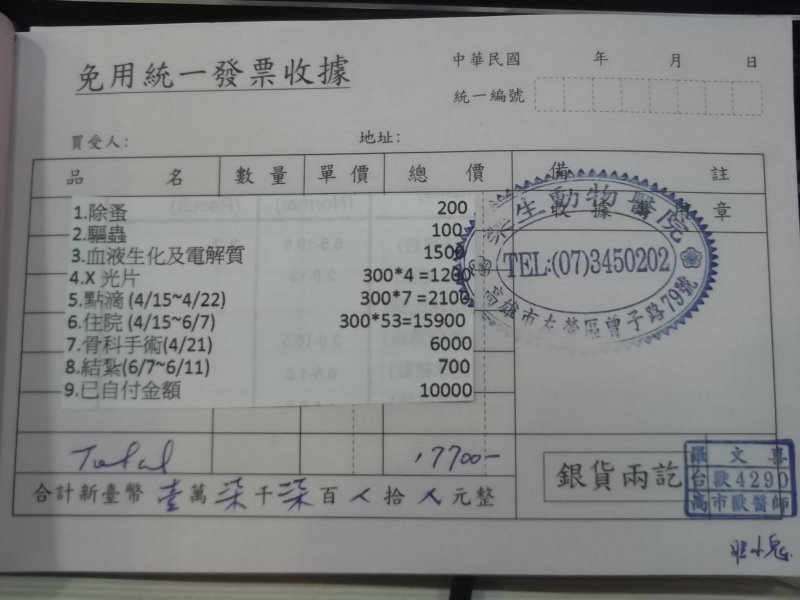 免用統一發票收據
中華民國 年 月 日
統一編號
買受人: 地址:
品 名 數 量 單 價 總 價 備 註
收 據 專 用 章
1.除蚤 200
2.驅蟲 100
3.血液生化及電解質 1500
4.X 光片 300*4 =1200
5.點滴 (4/15~4/22) 300*7 =2100
6.住院 (4/15~6/7) 300*53=15900
7.骨科手術(4/21) 6000
8.結紮(6/7~6/11) 700
9.已自付金額 10000
生動物醫院
TEL:(07)3450202
高雄市左營區曾子路79號
Total 17700-
合計新臺幣 壹 萬 柒 千 柒 百 拾 元整
銀貨兩訖
羅文喜
台獸4290
高市獸醫師